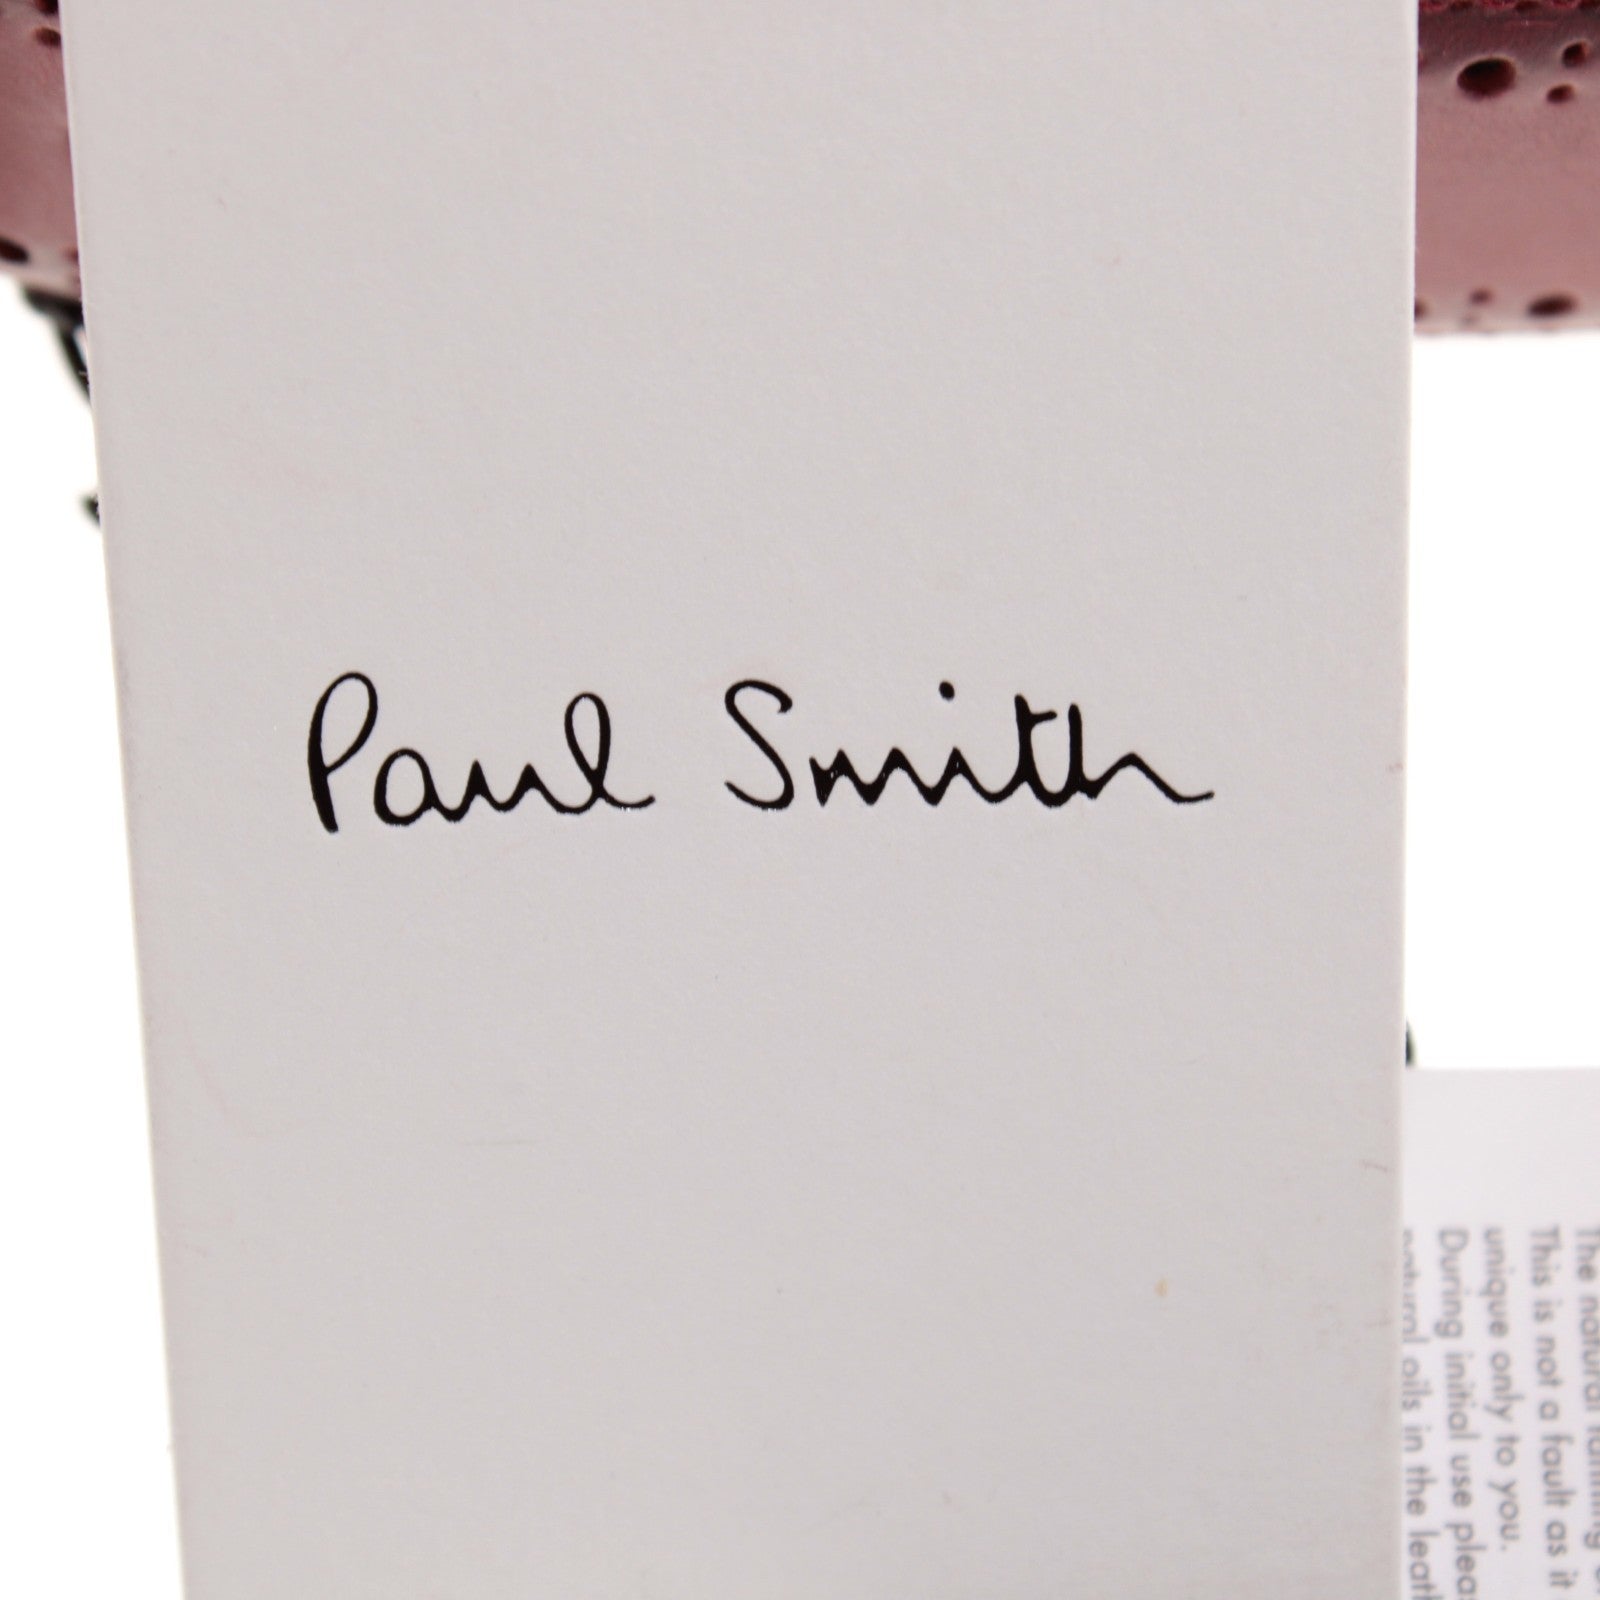 Paul Smith
The natural tanning
This is not a fault as it
unique only to you.
During initial use
natural oils in the